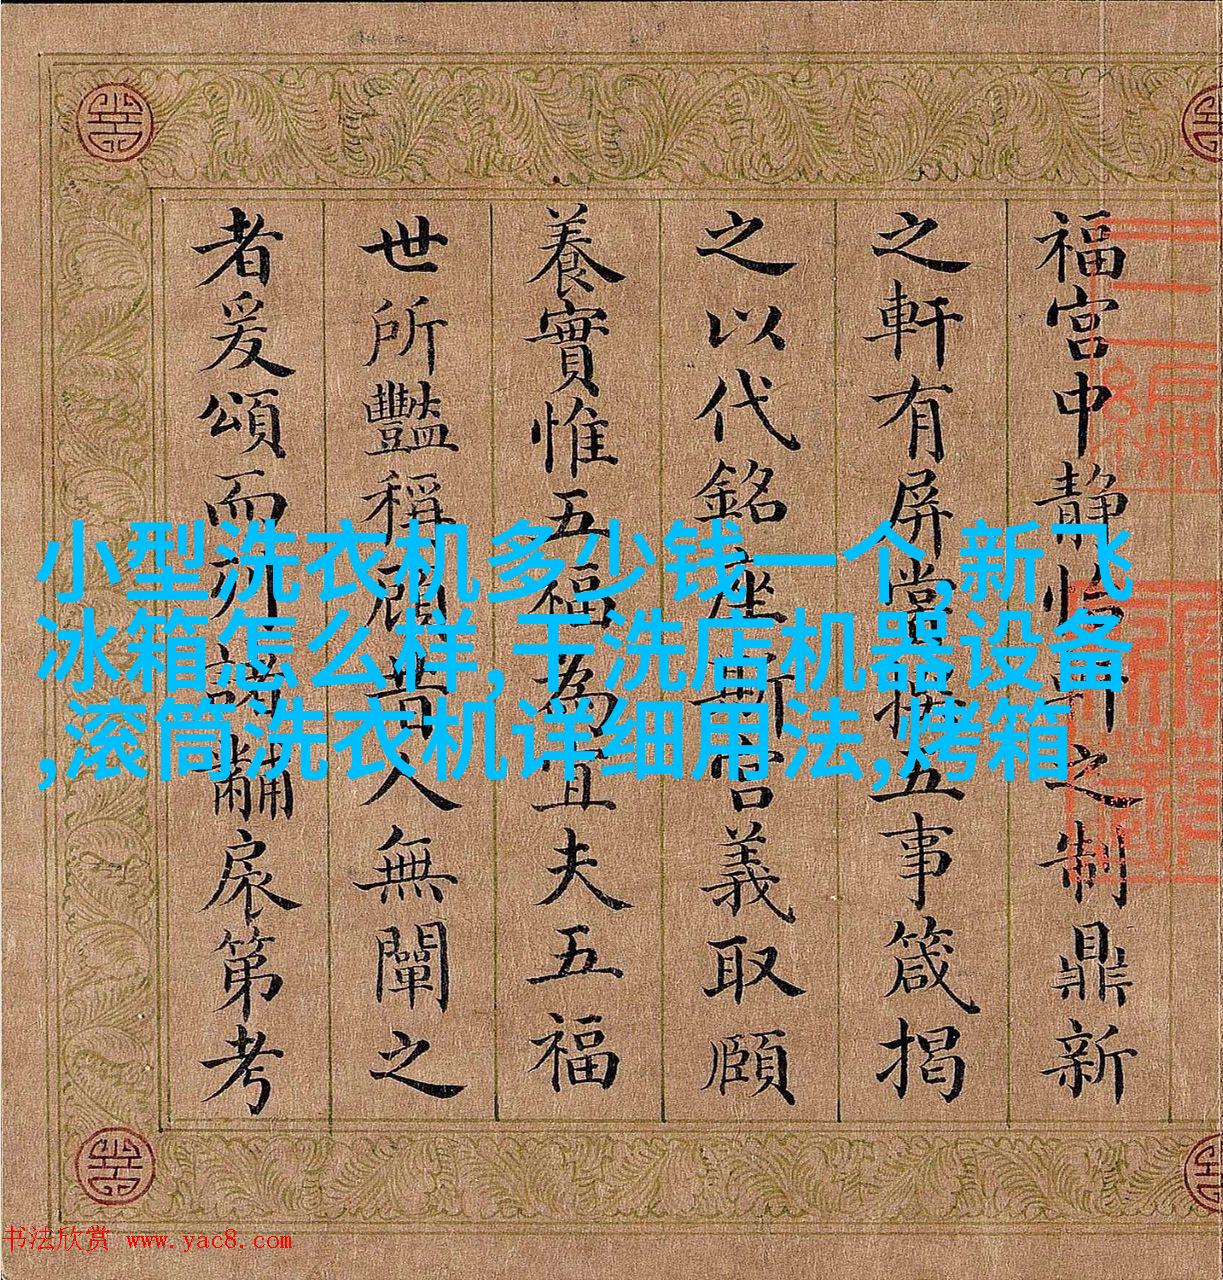 福宮中静怡軒之制鼎新
之軒有屏當五事箴揭
之以代銘座斯宫義取頤
養實惟五福為宜夫五福
世所豔稱顧昔人無闡之
者爰頌而列諸黼扆第考
小型洗衣机多少钱一个,新飞
冰箱怎么样,干洗店机器设备
,滚筒洗衣机详细用法,烤箱
书法欣赏 www.yac8.com